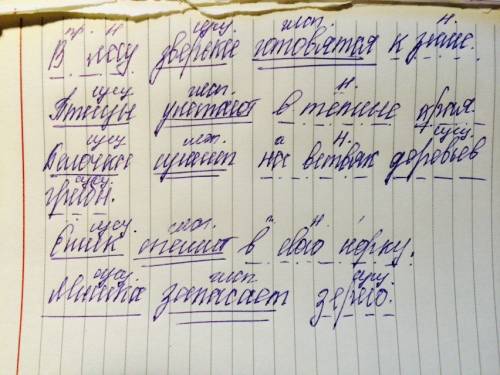 пр. Н. сущ. глаг. Н.
В лесу зверьки готовятся к зиме.
сущ. глаг. Н.
Птицы улетают в тёплые края
сущ. глаг. Н. сущ.
Белочка сушит на ветвях деревьев
сущ.
грибы.
сущ. глаг. Н.
Ёжик спешит в свою норку.
сущ. глаг. сущ.
Мышка запасает зерно.